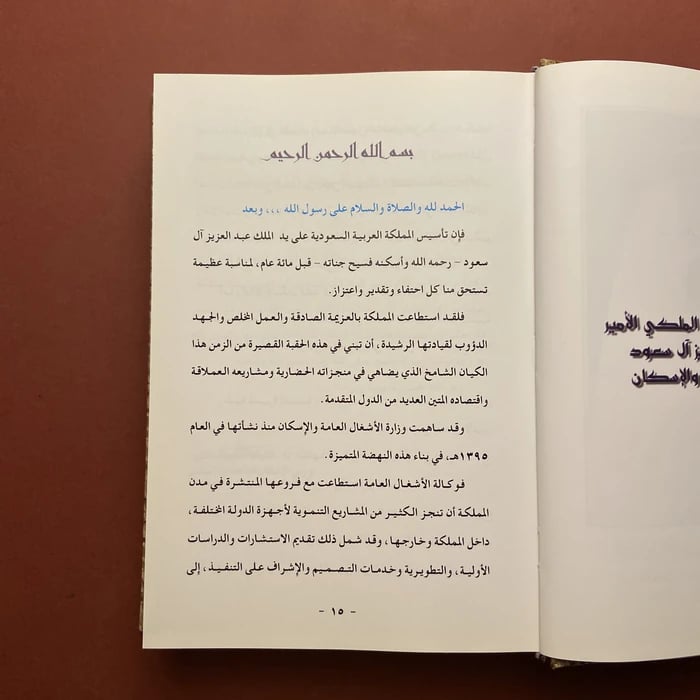 بسم الله الرحمن الرحيم
الحمد لله والصلاة والسلام على رسول الله ،،، وبعد
فإن تأسيس المملكة العربية السعودية على يد الملك عبد العزيز آل
سعود - رحمه الله وأسكنه فسيح جناته - قبل مائة عام، لمناسبة عظيمة
تستحق منا كل احتفاء وتقدير واعتزاز.
فلقد استطاعت المملكة بالعزيمة الصادقة والعمل المخلص والجهد
الدؤوب لقيادتها الرشيدة، أن تبني في هذه الحقبة القصيرة من الزمن هذا
الكيان الشامخ الذي يضاهي في منجزاته الحضارية ومشاريعه العملاقة
واقتصاده المتين العديد من الدول المتقدمة.
وقد ساهمت وزارة الأشغال العامة والإسكان منذ نشأتها في العام
١٣٩٥هـ، في بناء هذه النهضة المتميزة.
فوكالة الأشغال العامة استطاعت مع فروعها المنتشرة في مدن
المملكة أن تنجز الكثير من المشاريع التنموية لأجهزة الدولة المختلفة،
داخل المملكة وخارجها، وقد شمل ذلك تقديم الاستشارات والدراسات
الأولية، والتطويرية وخدمات التصميم والإشراف على التنفيذ، إلى
- ١٥ -
الملكي الأمير
آل سعود
والإسكان